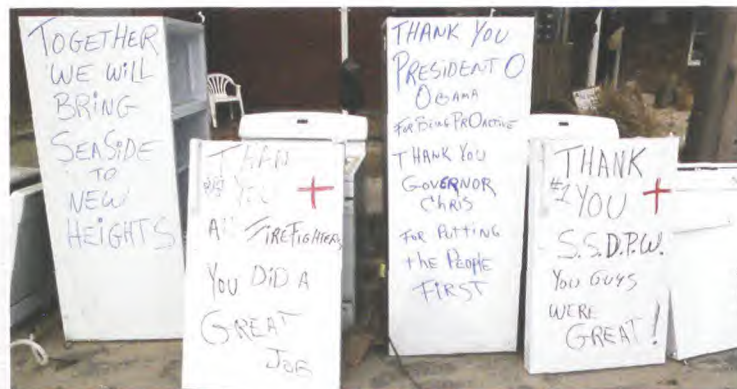 TOGETHER
WE WILL
BRING
SEASIDE
TO
NEW
HEIGHTS
THAN
YOU +
All FIREFIGHTERS
YOU DID A
GREAT
JOB
THANK YOU
PRESIDENT O
OBAMA
FOR BEING PROACTIVE
THANK YOU
GOVERNOR
CHRIS
FOR PUTTING
the PEOPLE
FIRST
THANK
#1 YOU +
S.S.D.P.W.
YOU GUYS
WERE
GREAT!